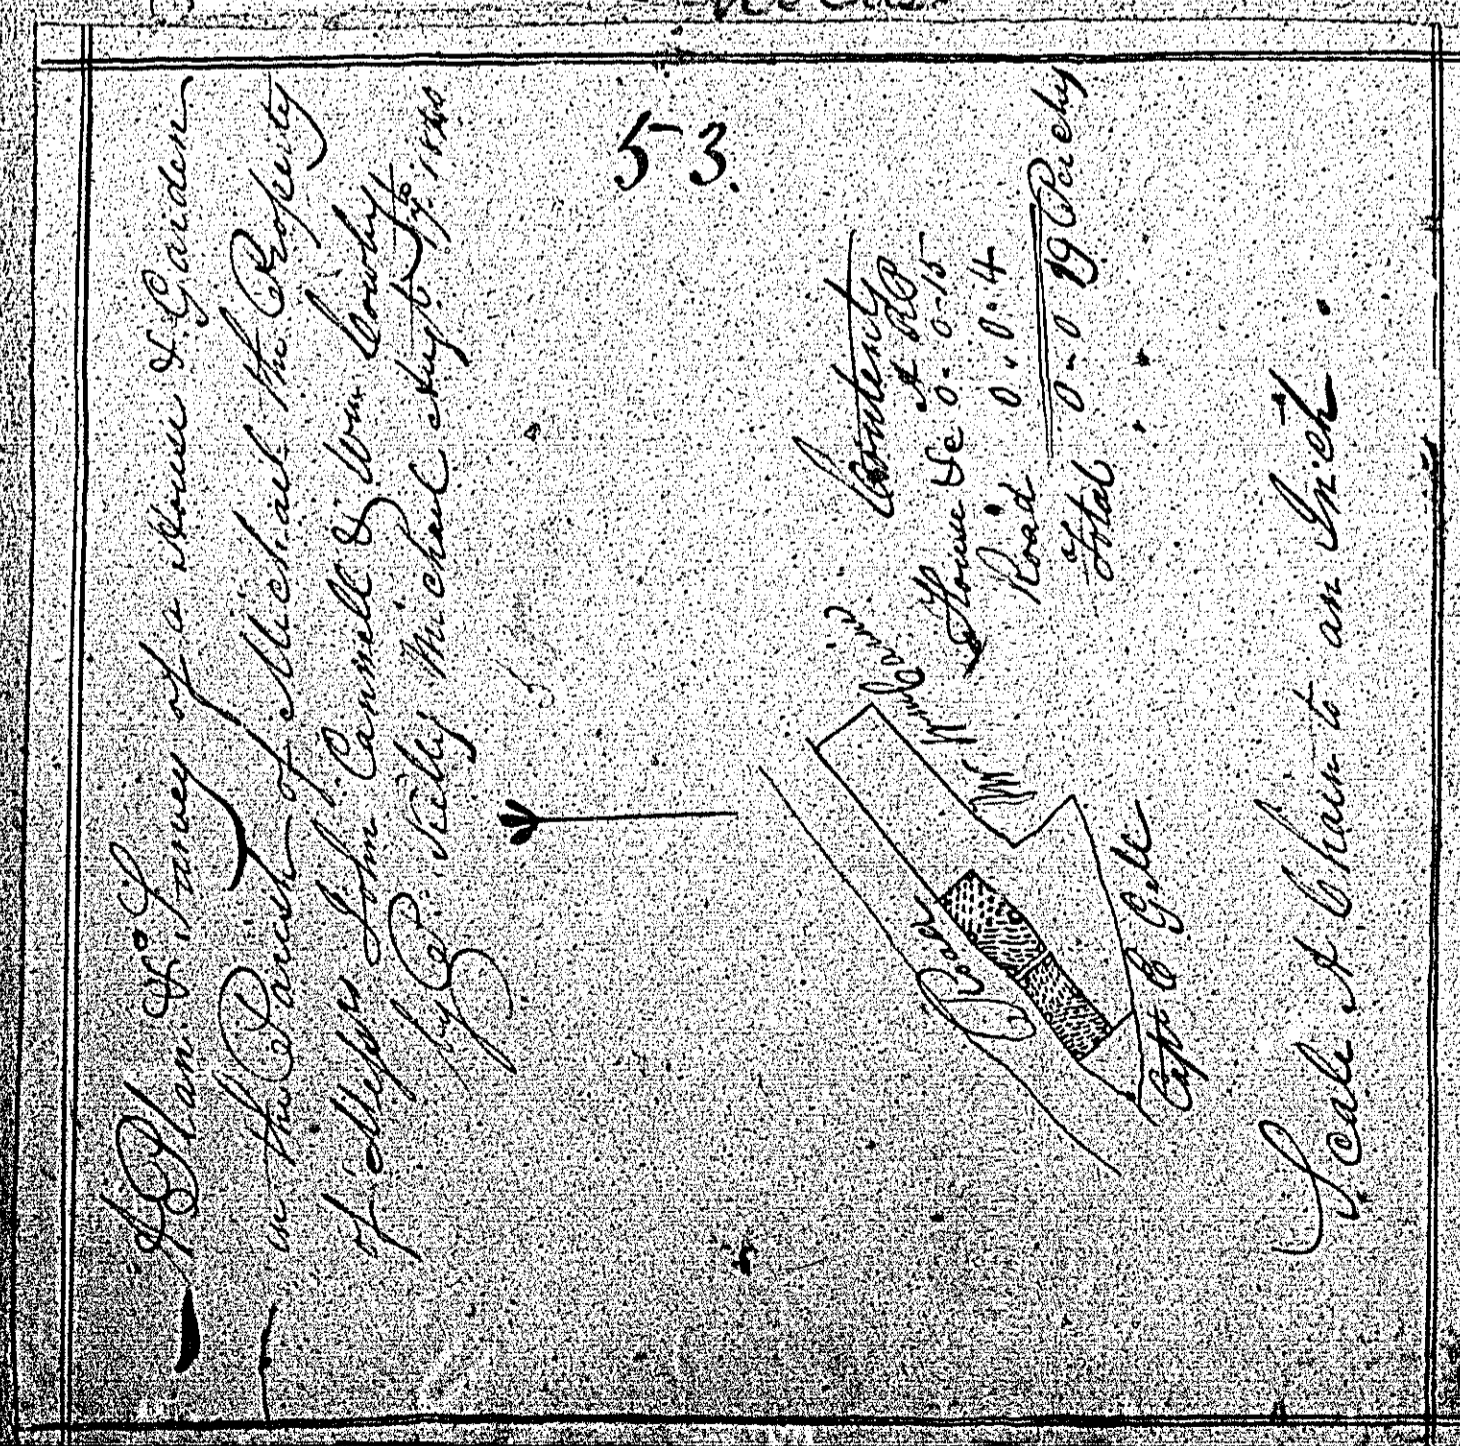 A Plan & Survey of a House & Garden
in the Parish of Michael the Property
of Messrs John Cannell & Wm Cowley
by P. Kelly Michael 1840
53.
Contents
A R P
House &c 0-0-15
Road 0.0.4
Total 0-0 19 Perches
Road
Wm
Capt E Gill
Scale A Chain to an Inch.